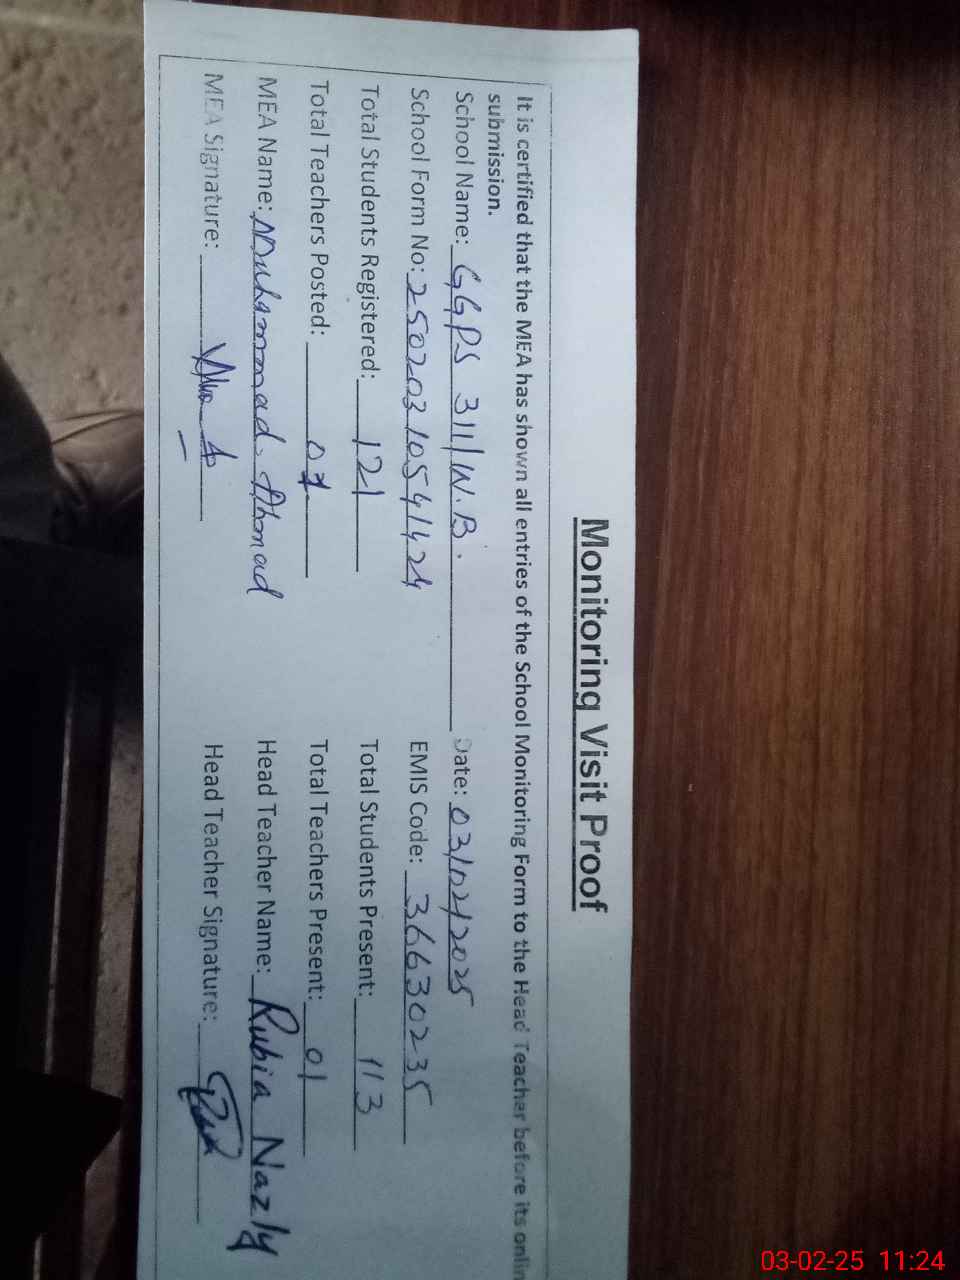 Monitoring Visit Proof
It is certified that the MEA has shown all entries of the School Monitoring Form to the Head Teacher before its onlin
submission.
School Name: GGPS 311/W.B. Date: 03/02/2025
School Form No: 25020310541424 EMIS Code: 36630235
Total Students Registered: 121 Total Students Present: 113
Total Teachers Posted: Total Teachers Present: 01
MEA Name: Muhammad Ahmad Head Teacher Name: Rubia Nazly
MEA Signature: Head Teacher Signature:
03-02-25 11:24